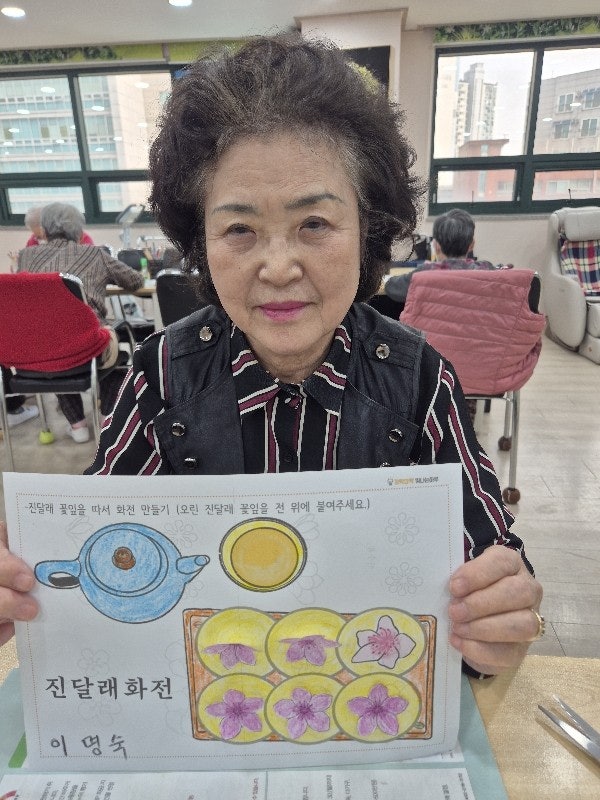 진달래 꽃잎을 따서 화전 만들기 (오린 진달래 꽃잎을 전 위에 붙여주세요.)
진달래화전
이 명숙